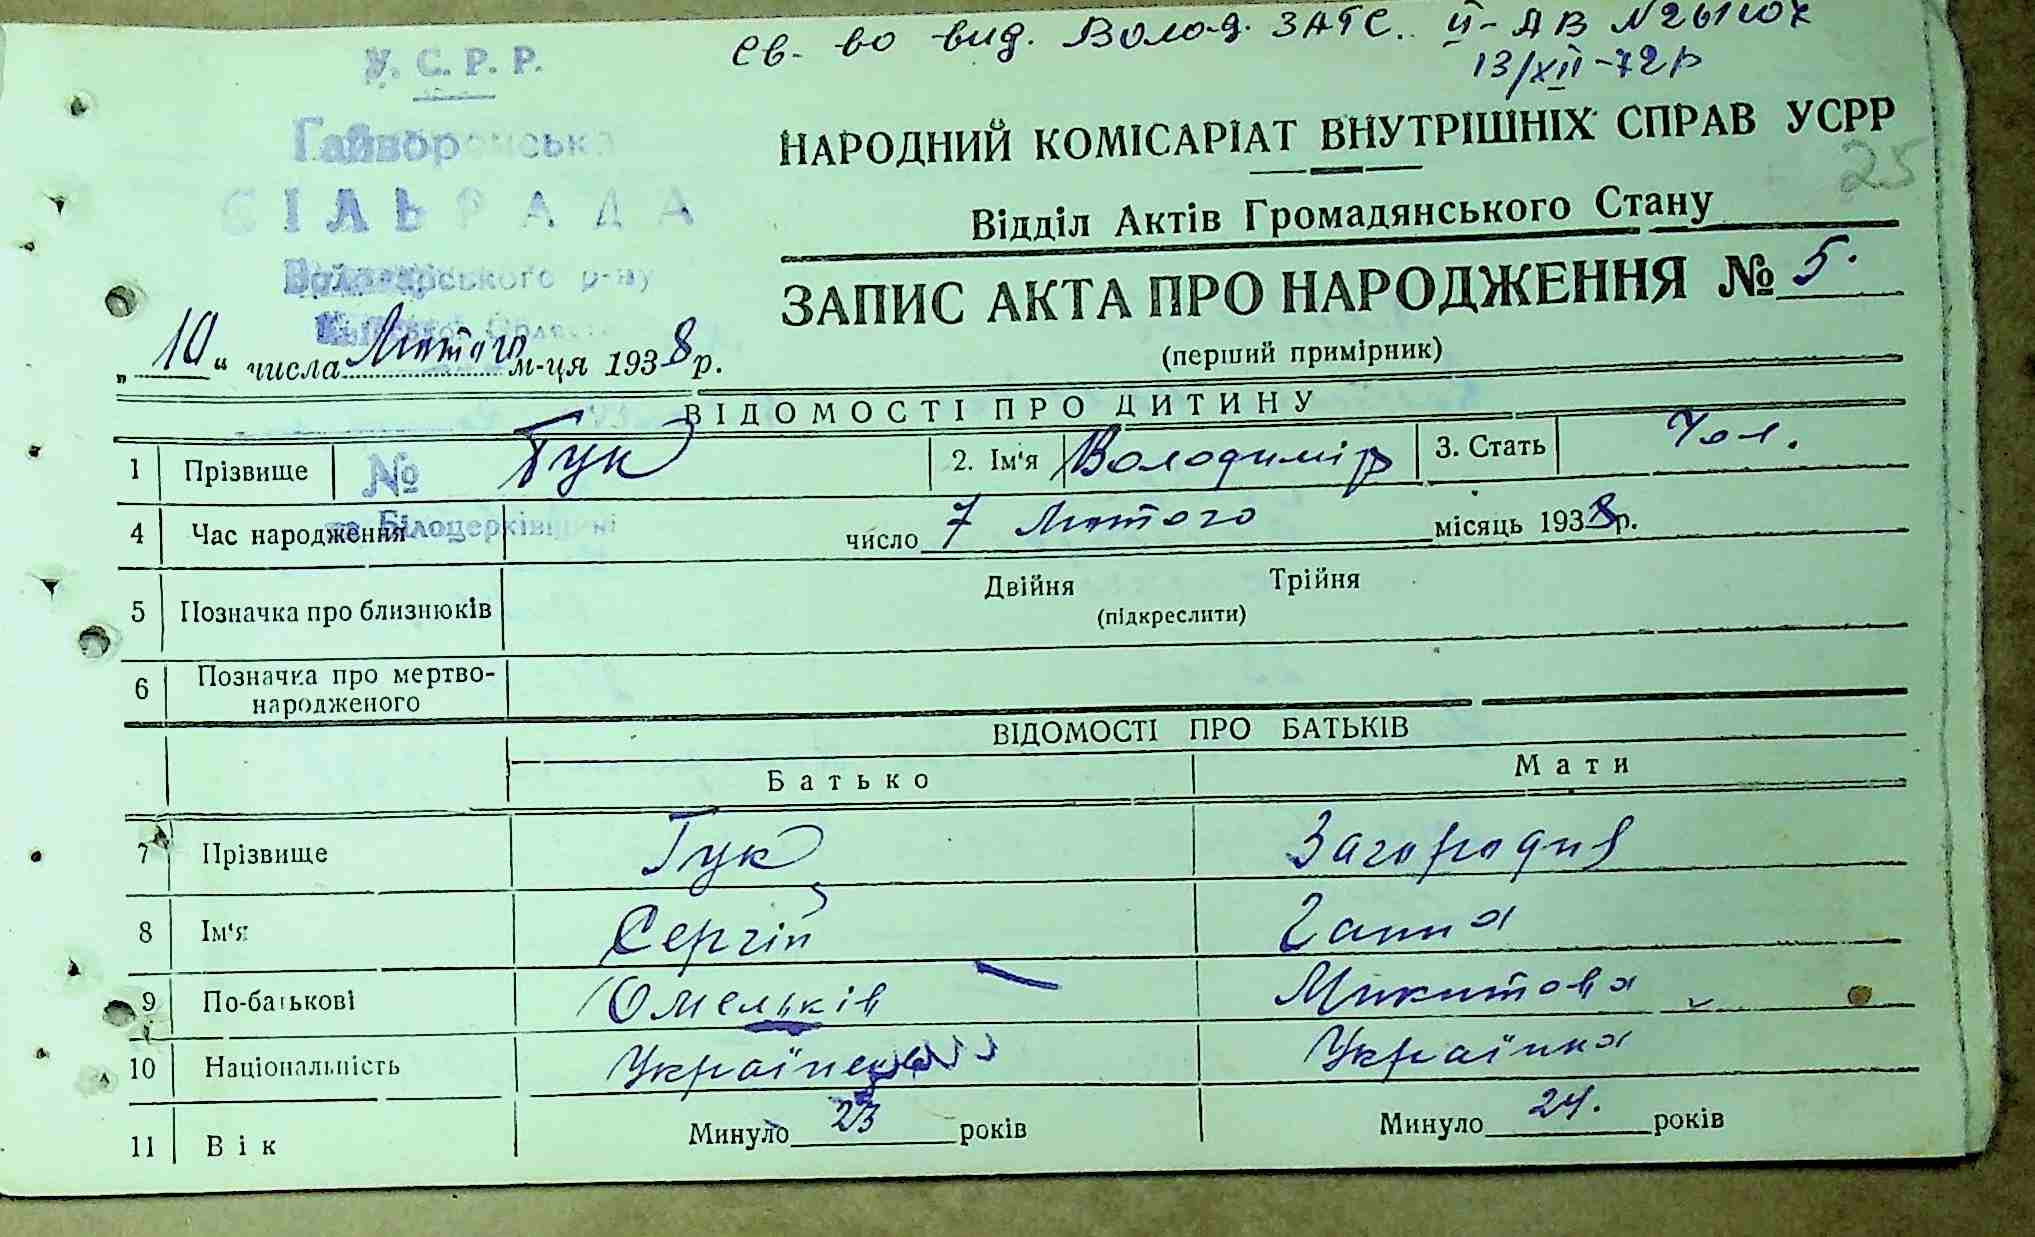 Св-во вид. Волод. ЗАГС. II-АВ №
13/XII-72р
У. С. Р. Р.
Гайворонська
СІЛЬРАДА
Володарського р-ну
НАРОДНИЙ КОМІСАРІАТ ВНУТРІШНІХ СПРАВ УСРР
25
Відділ Актів Громадянського Стану
ЗАПИС АКТА ПРО НАРОДЖЕННЯ № 5.
(перший примірник)
„10“ числа Лютого м-ця 1938 р.
ВІДОМОСТІ ПРО ДИТИНУ
1 Прізвище № Гук 2. Ім'я Володимір 3. Стать Чол.
4 Час народження число 7 Лютого місяць 1938 р.
на Білоцерківщині
5 Позначка про близнюків Двійня Трійня
(підкреслити)
6 Позначка про мертво-
народженого
ВІДОМОСТІ ПРО БАТЬКІВ
Батько Мати
7 Прізвище Гук Загородня
8 Ім'я Сергій Ганна
9 По-батькові Омельків Микитова
10 Національність Українець Українка
11 Вік Минуло 23 років Минуло 24. років